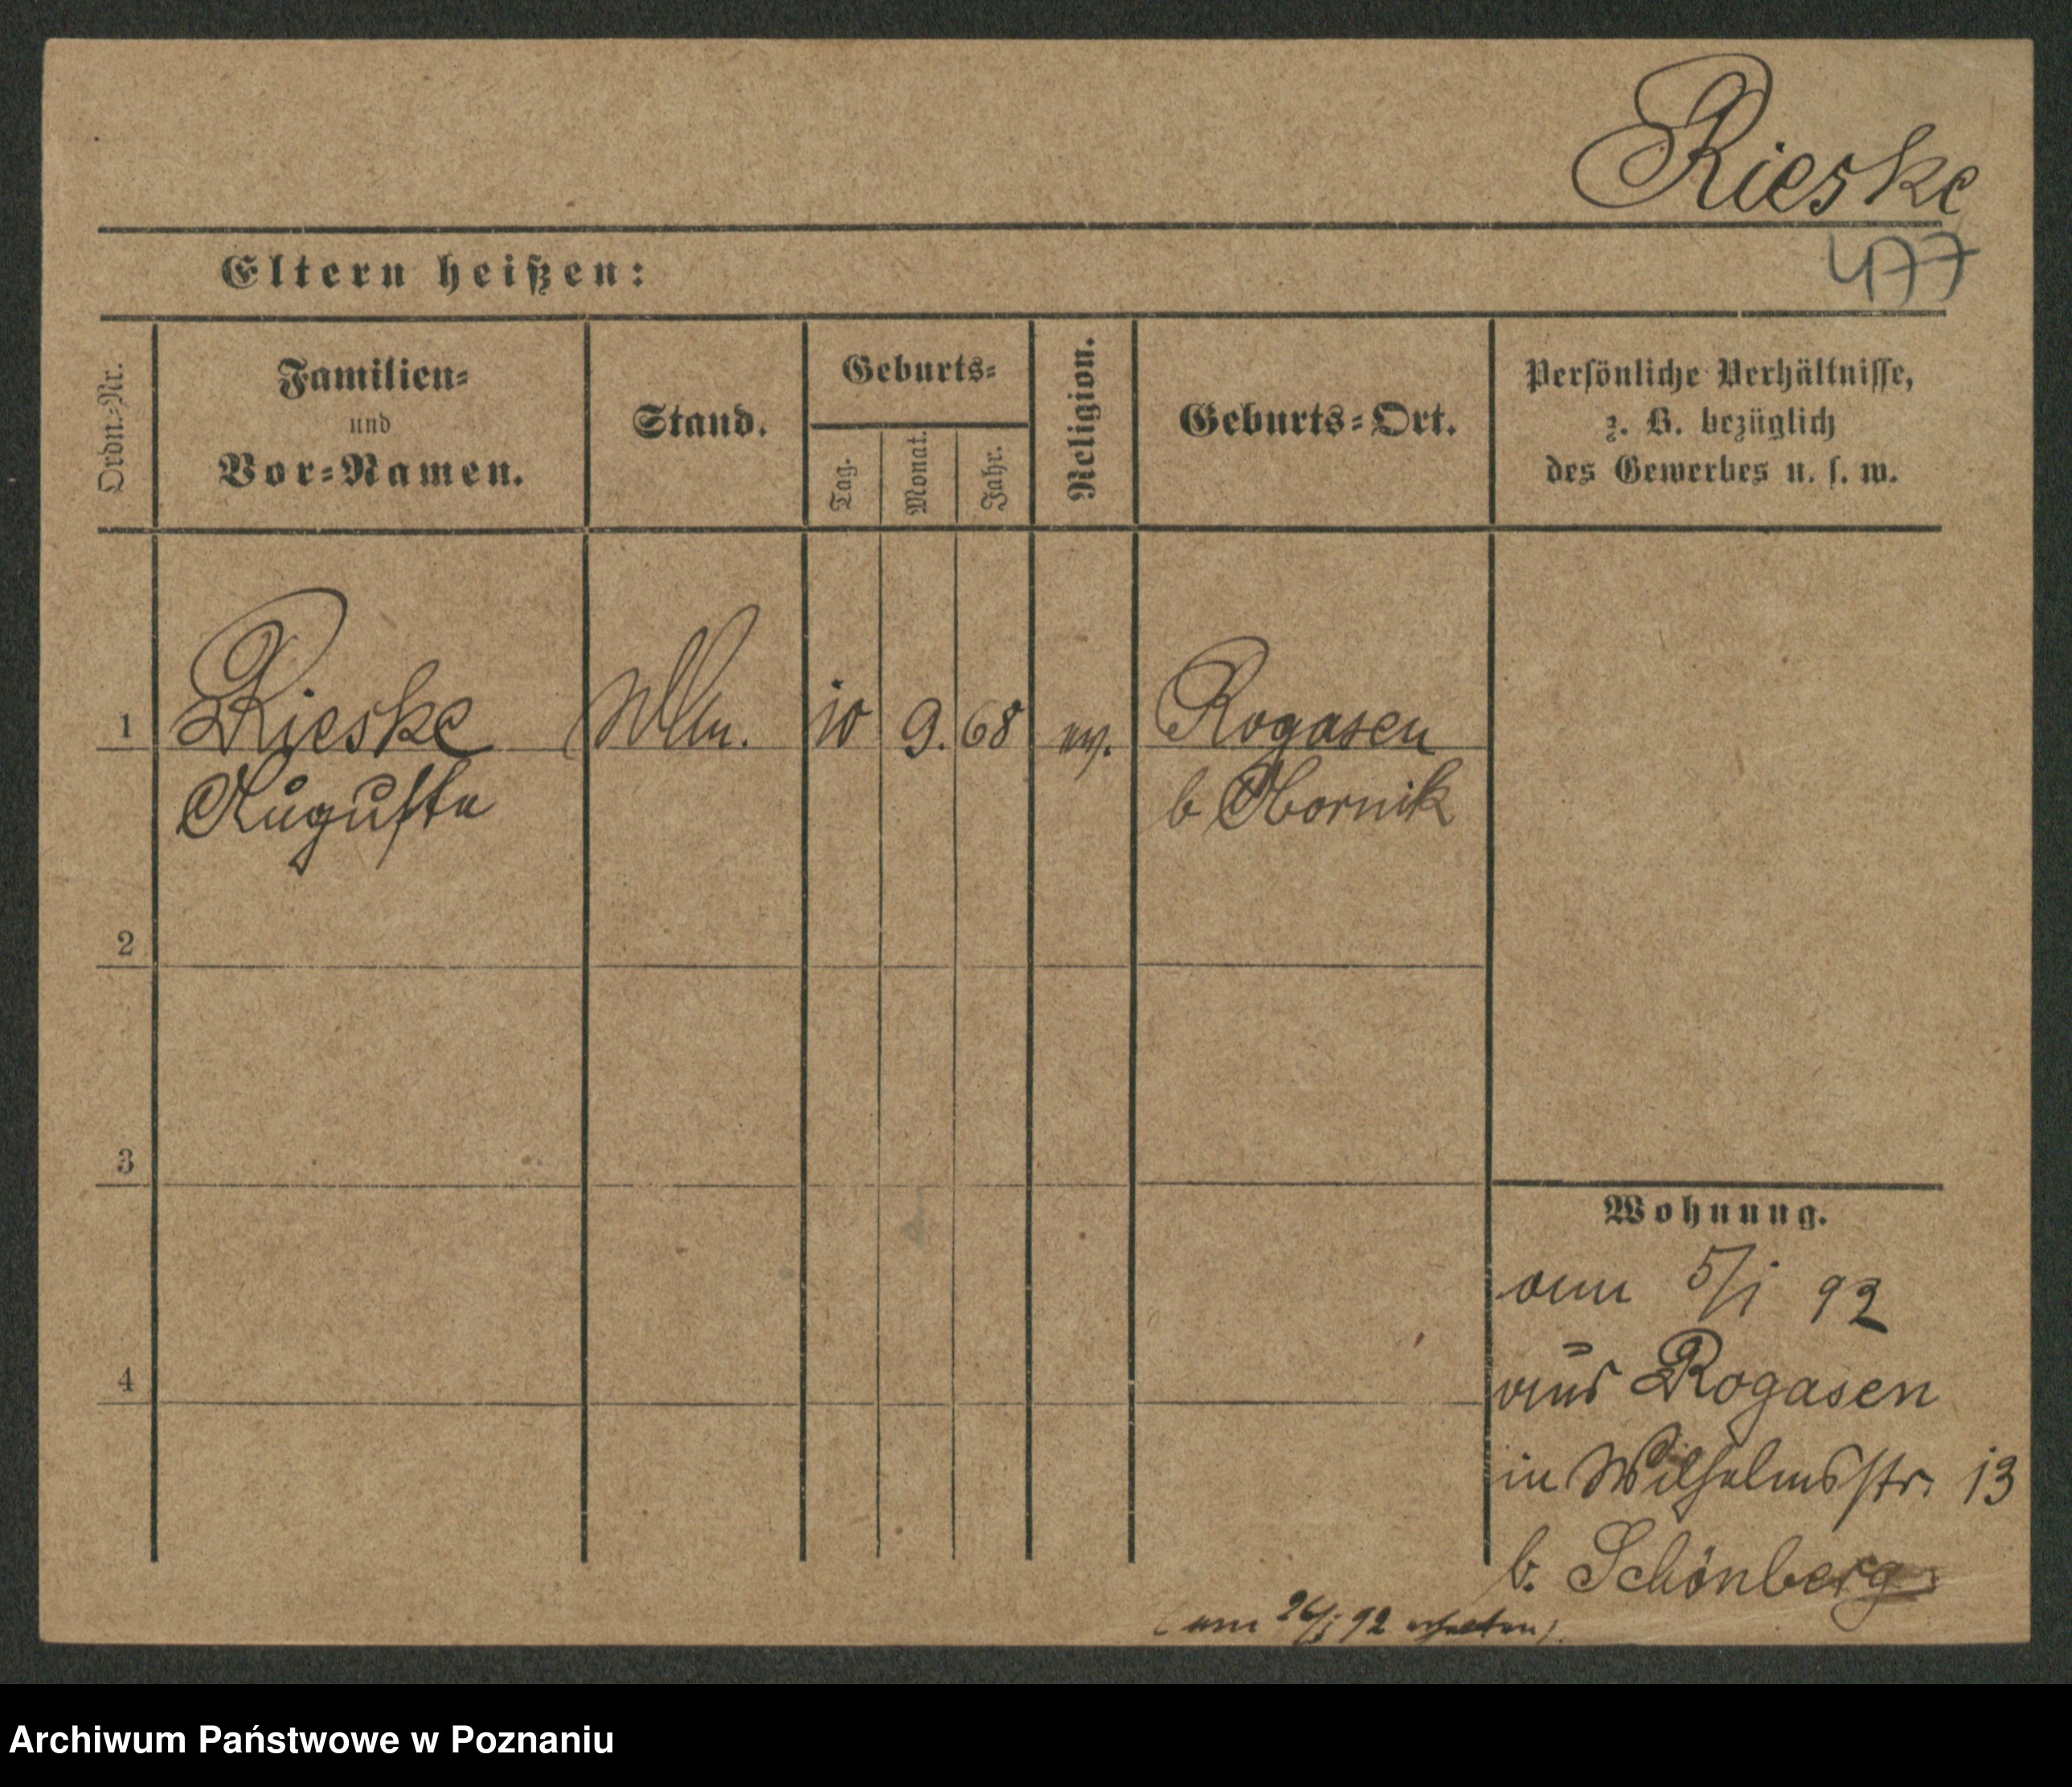 Rieske
477
Eltern heißen:
Ordn.-Nr.
Familien-
und
Vor-Namen.
Stand.
Geburts-
Tag.
Monat.
Jahr.
Religion.
Geburts-Ort.
Persönliche Verhältnisse,
z. B. bezüglich
des Gewerbes u. s. w.
1 Rieske 10 9. 68 ev. Rogasen
Auguste b Obornik
2
3
4
Wohnung.
am 5/1 92
aus Rogasen
in Wilhelmsstr. 13
b. Schönberg
(am 26/1 92 erhalten).
Archiwum Państwowe w Poznaniu